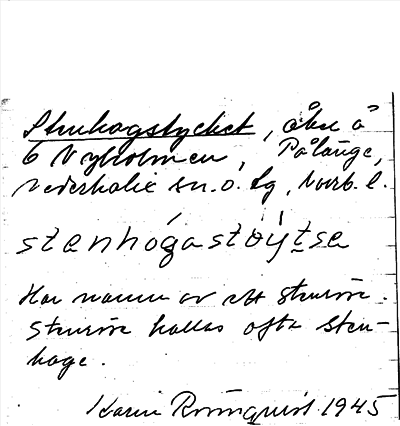 Stenhagstycket, åker å
6 Nyholmen, Pålänge,
Nederkalix sn. o. lg, Norrb. l.
stenhógastöytsə
Har namn av ett stenröse.
Stenröse kallas ofta sten-
hage.
Karin 1945